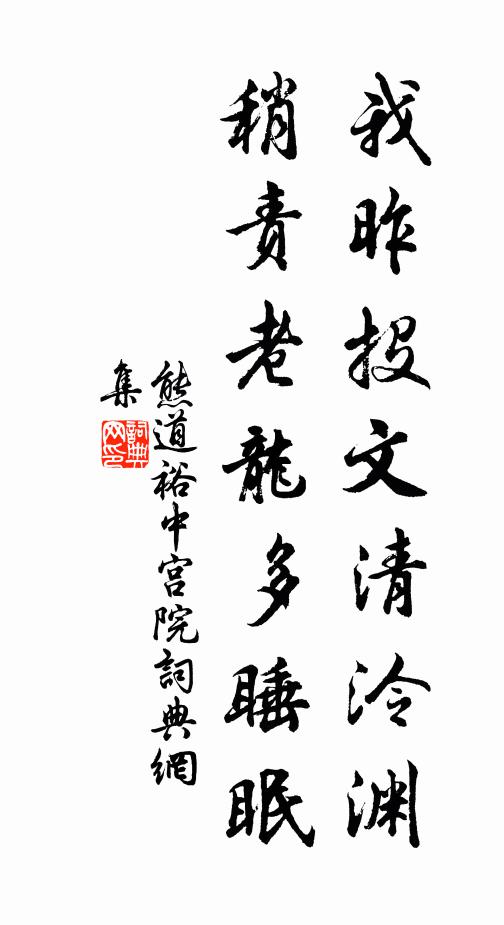 我昨投文清泠渊
稍责老龍多睡眠
熊道裕中宫院詞典網
集
詞典
网印